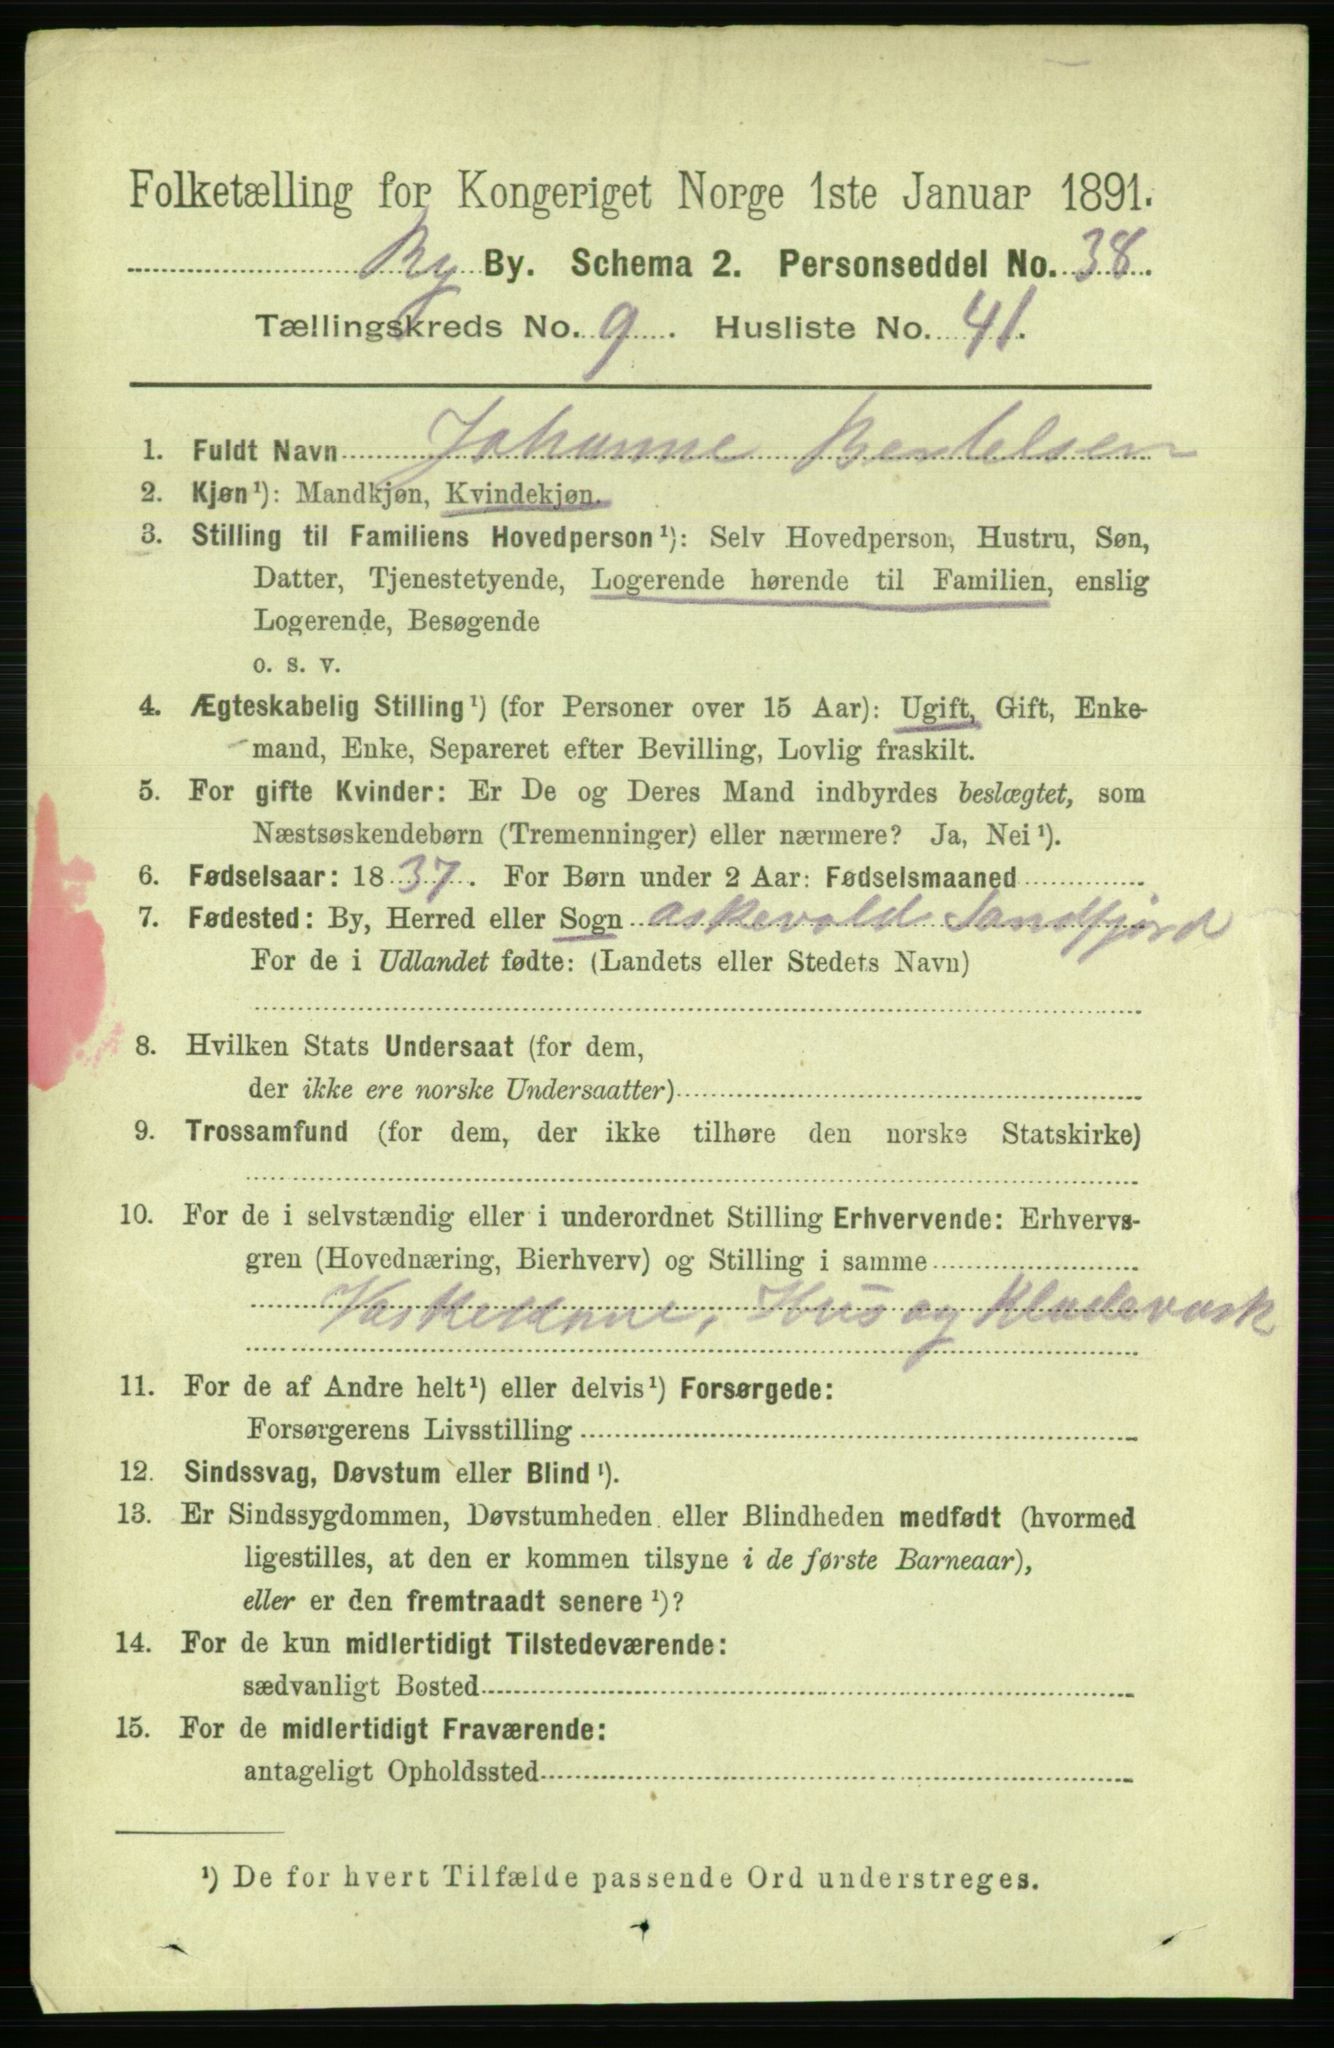 Folketælling for Kongeriget Norge 1ste Januar 1891.
By. Schema 2. Personseddel No. 38.
Tællingskreds No. 9. Husliste No. 41.
1. Fuldt Navn Johanne Bertelsen
2. Kjøn¹): Mandkjøn, Kvindekjøn.
3. Stilling til Familiens Hovedperson¹): Selv Hovedperson, Hustru, Søn,
Datter, Tjenestetyende, Logerende hørende til Familien, enslig
Logerende, Besøgende
o. s. v.
4. Ægteskabelig Stilling¹) (for Personer over 15 Aar): Ugift, Gift, Enke-
mand, Enke, Separeret efter Bevilling, Lovlig fraskilt.
5. For gifte Kvinder: Er De og Deres Mand indbyrdes beslægtet, som
Næstsøskendebørn (Tremenninger) eller nærmere? Ja, Nei¹).
6. Fødselsaar: 1837. For Børn under 2 Aar: Fødselsmaaned
7. Fødested: By, Herred eller Sogn askevold Sandfjord
For de i Udlandet fødte: (Landets eller Stedets Navn)
8. Hvilken Stats Undersaat (for dem,
der ikke ere norske Undersaatter)
9. Trossamfund (for dem, der ikke tilhøre den norske Statskirke)
10. For de i selvstændig eller i underordnet Stilling Erhvervende: Erhvervs-
gren (Hovednæring, Bierhverv) og Stilling i samme
Vaskekone, Hus og Kladevask
11. For de af Andre helt¹) eller delvis¹) Forsørgede:
Forsørgerens Livsstilling
12. Sindssvag, Døvstum eller Blind¹).
13. Er Sindssygdommen, Døvstumheden eller Blindheden medfødt (hvormed
ligestilles, at den er kommen tilsyne i de første Barneaar),
eller er den fremtraadt senere¹)?
14. For de kun midlertidigt Tilstedeværende:
sædvanligt Bosted
15. For de midlertidigt Fraværende:
antageligt Opholdssted
¹) De for hvert Tilfælde passende Ord understreges.